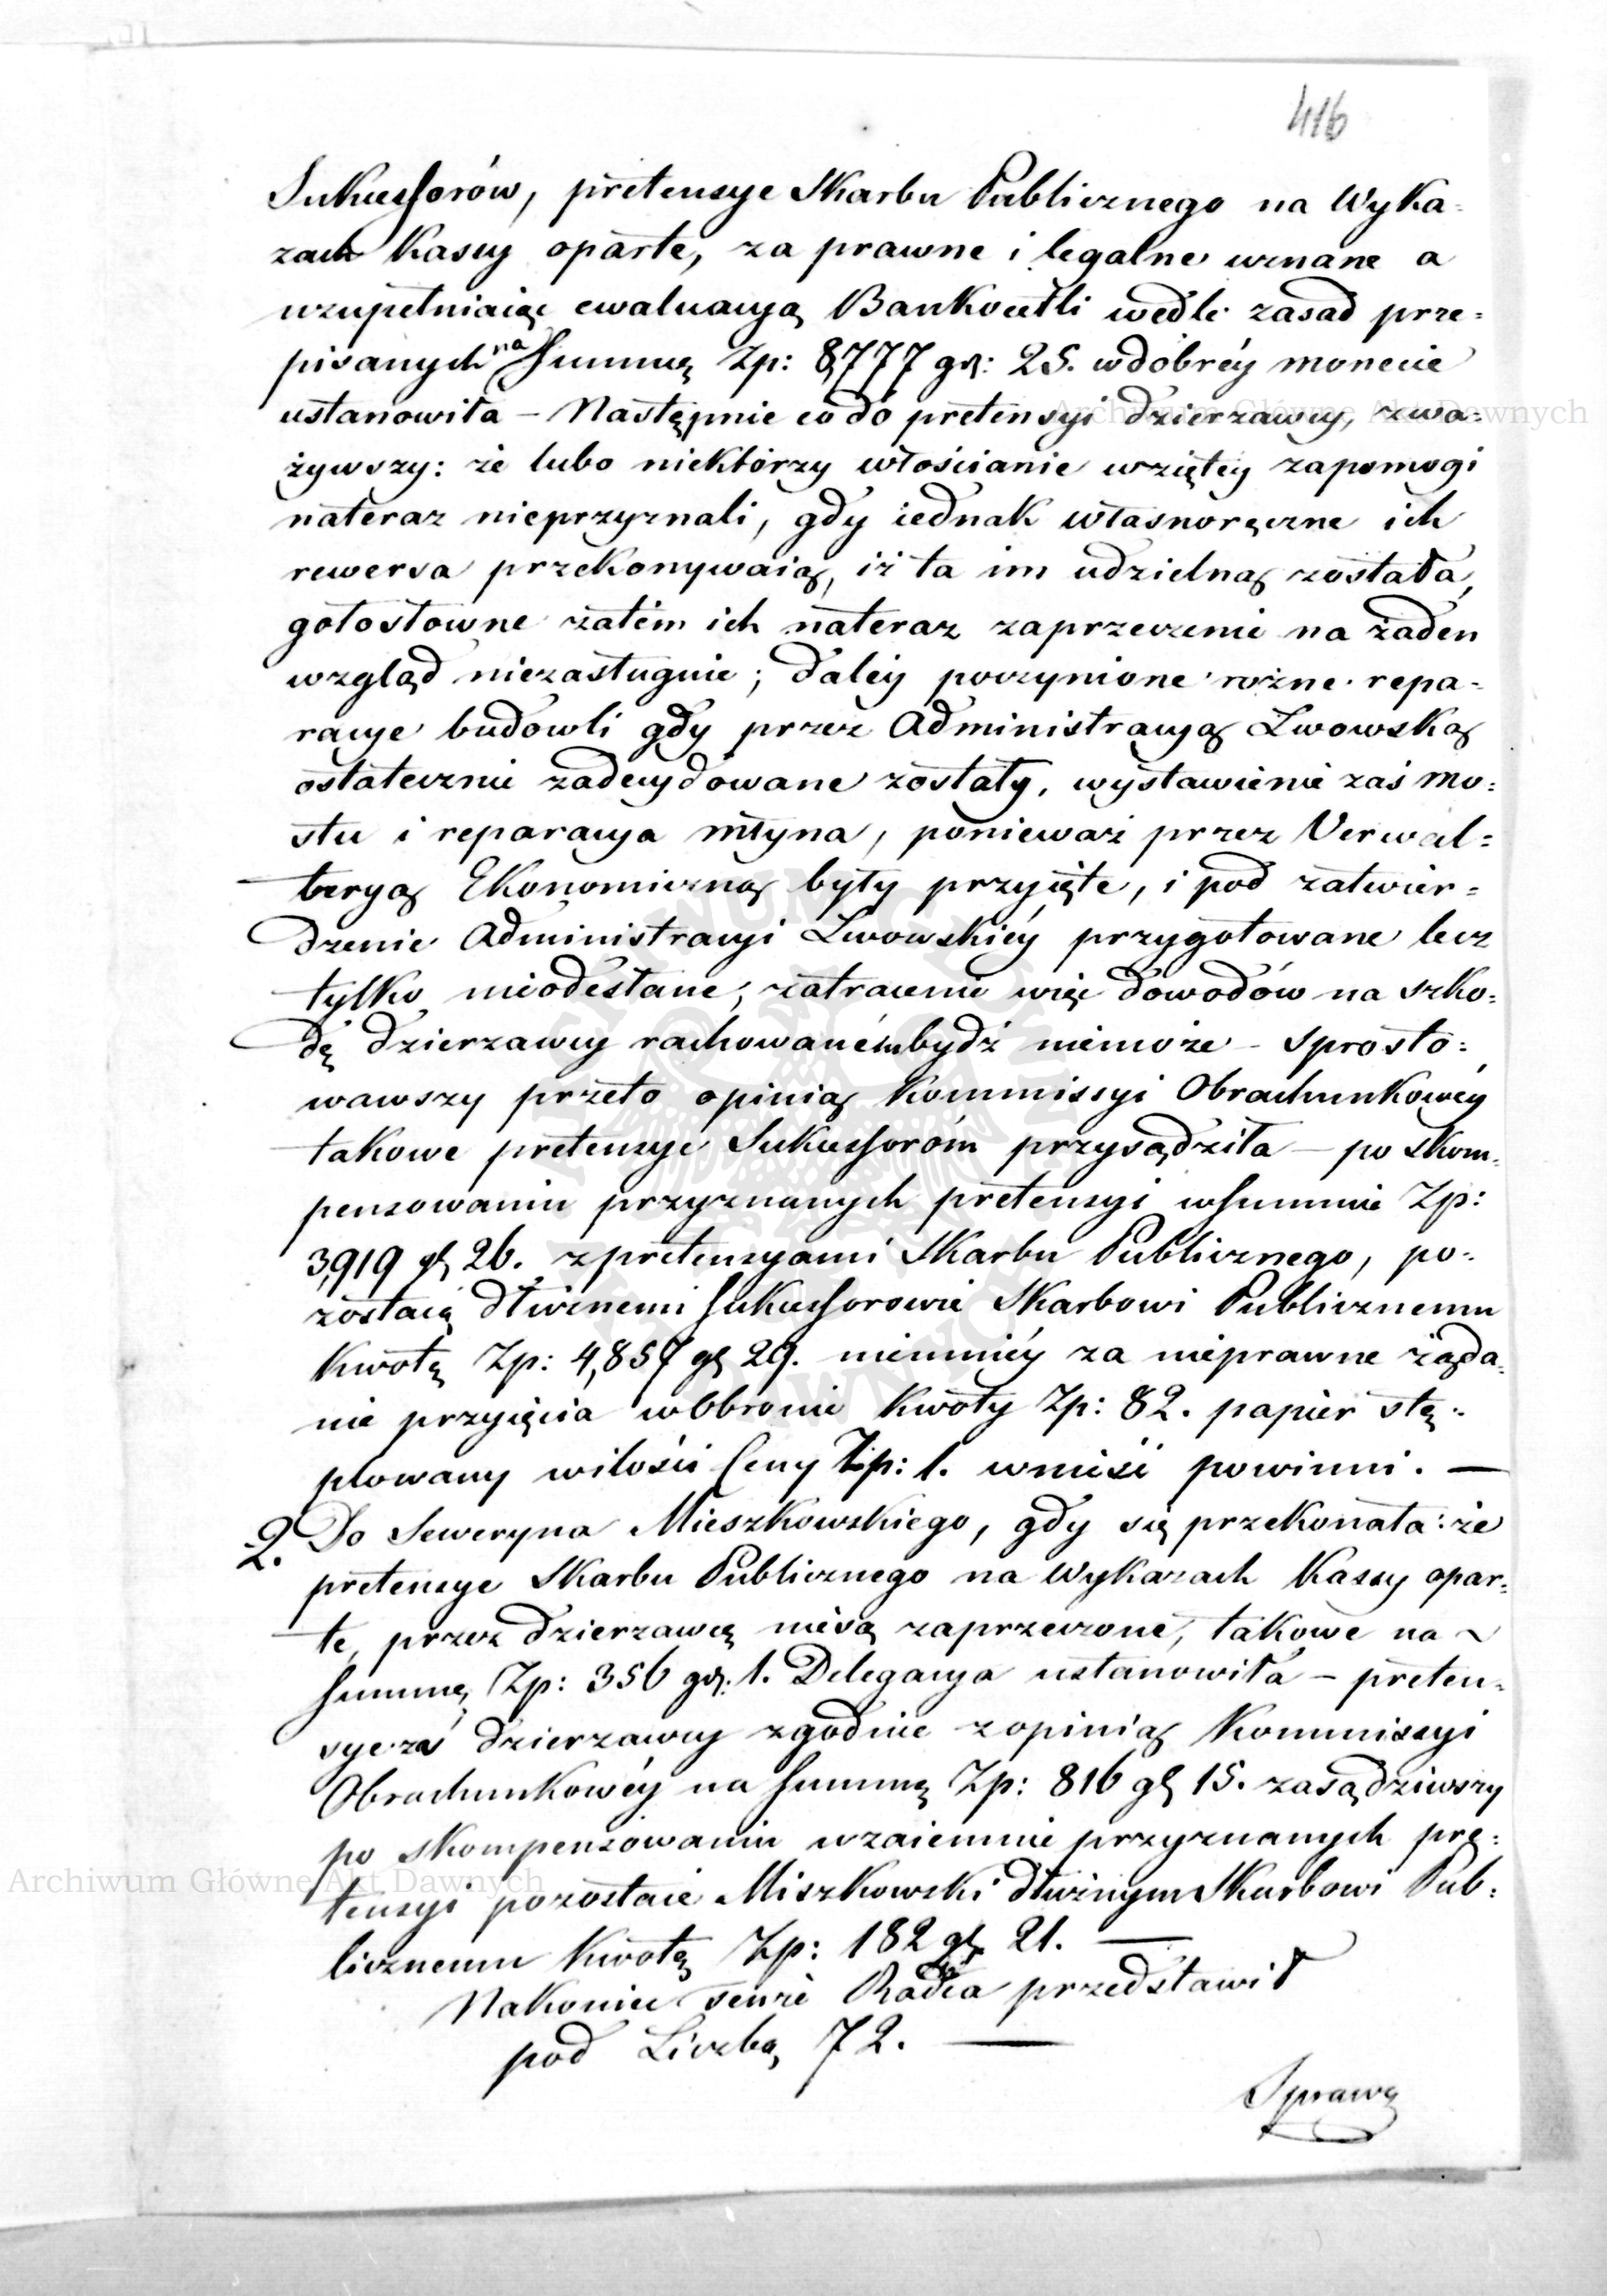 416
Sukcessorów, pretensye Skarbu Publicznego na Wyka-
zach Kassy oparte, za prawne i legalne uznane a
uzupełniaiąc ewaluacyą Bankocetli wedle zasad prze-
pisanych na Summę Zp: 8,777 gr: 25. w dobréy monecie
ustanowiła – Następnie co do pretensyi dzierzawcy, zwa-
żywszy: że lubo niektórzy włościanie wziętéy zapomogi
nateraz nieprzyznali, gdy iednak własnoręczne ich
rewersa przekonywaią, iż ta im udzielną została,
gołosłowne zatém ich nateraz zaprzeczenie na żaden
wzgląd niezasługuie; daléy poczynione rożne repa-
racye budowli gdy przez Administracyą Lwowską
ostatecznie zadecydowane zostały, wystawienie zaś mo-
stu i reparacya młyna, ponieważ przez Verwal-
teryą Ekonomiczną były przyięte, i pod zatwier-
dzenie Administracyi Lwowskiéy przygotowane lecz
tylko nieodesłane, zatracenie więc dowodów na szko-
dę dzierzawcy rachowaném bydź niemoże – Sprosto-
wawszy przeto opinią Kommissyi Obrachunkowéy
takowe pretensye Sukcessoróm przysądziła – po skom-
pensowaniu przyznanych pretensyi w Summie Zp:
3,919 gr 26. z pretensyami Skarbu Publicznego, po-
zostaią dłużnemi Sukcessorowie Skarbowi Publicznemu
Kwotę Zp: 4,857 gr 29. niemniéy za nieprawne żąda-
nie przyięcia w Obronie Kwoty Zp: 82. papier stę-
plowany w ilości Ceny Zp: 1. wnieść powinni. —
2. Do Seweryna Mieszkowskiego, gdy się przekonała: że
pretensye Skarbu Publicznego na Wykazach Kassy opar-
te, przez dzierzawcę niesą zaprzeczone, takowe na
Summę Zp: 356 gr: 1. Delegacya ustanowiła – preten-
sye zaś dzierzawcy zgodnie z opinią Kommissyi
Obrachunkowéy na Summę Zp: 816 gr 15. zasądziwszy
po skompensowaniu wzaiemnie przyznanych pre-
tensyi pozostaie Miszkowski dłużnym Skarbowi Pub-
licznemu Kwotę Zp: 182 gr 21. —
Nakoniec tenże Radca przedstawił
pod Liczbą 72. —
Sprawę
Archiwum Główne Akt Dawnych
Archiwum Główne Akt Dawnych